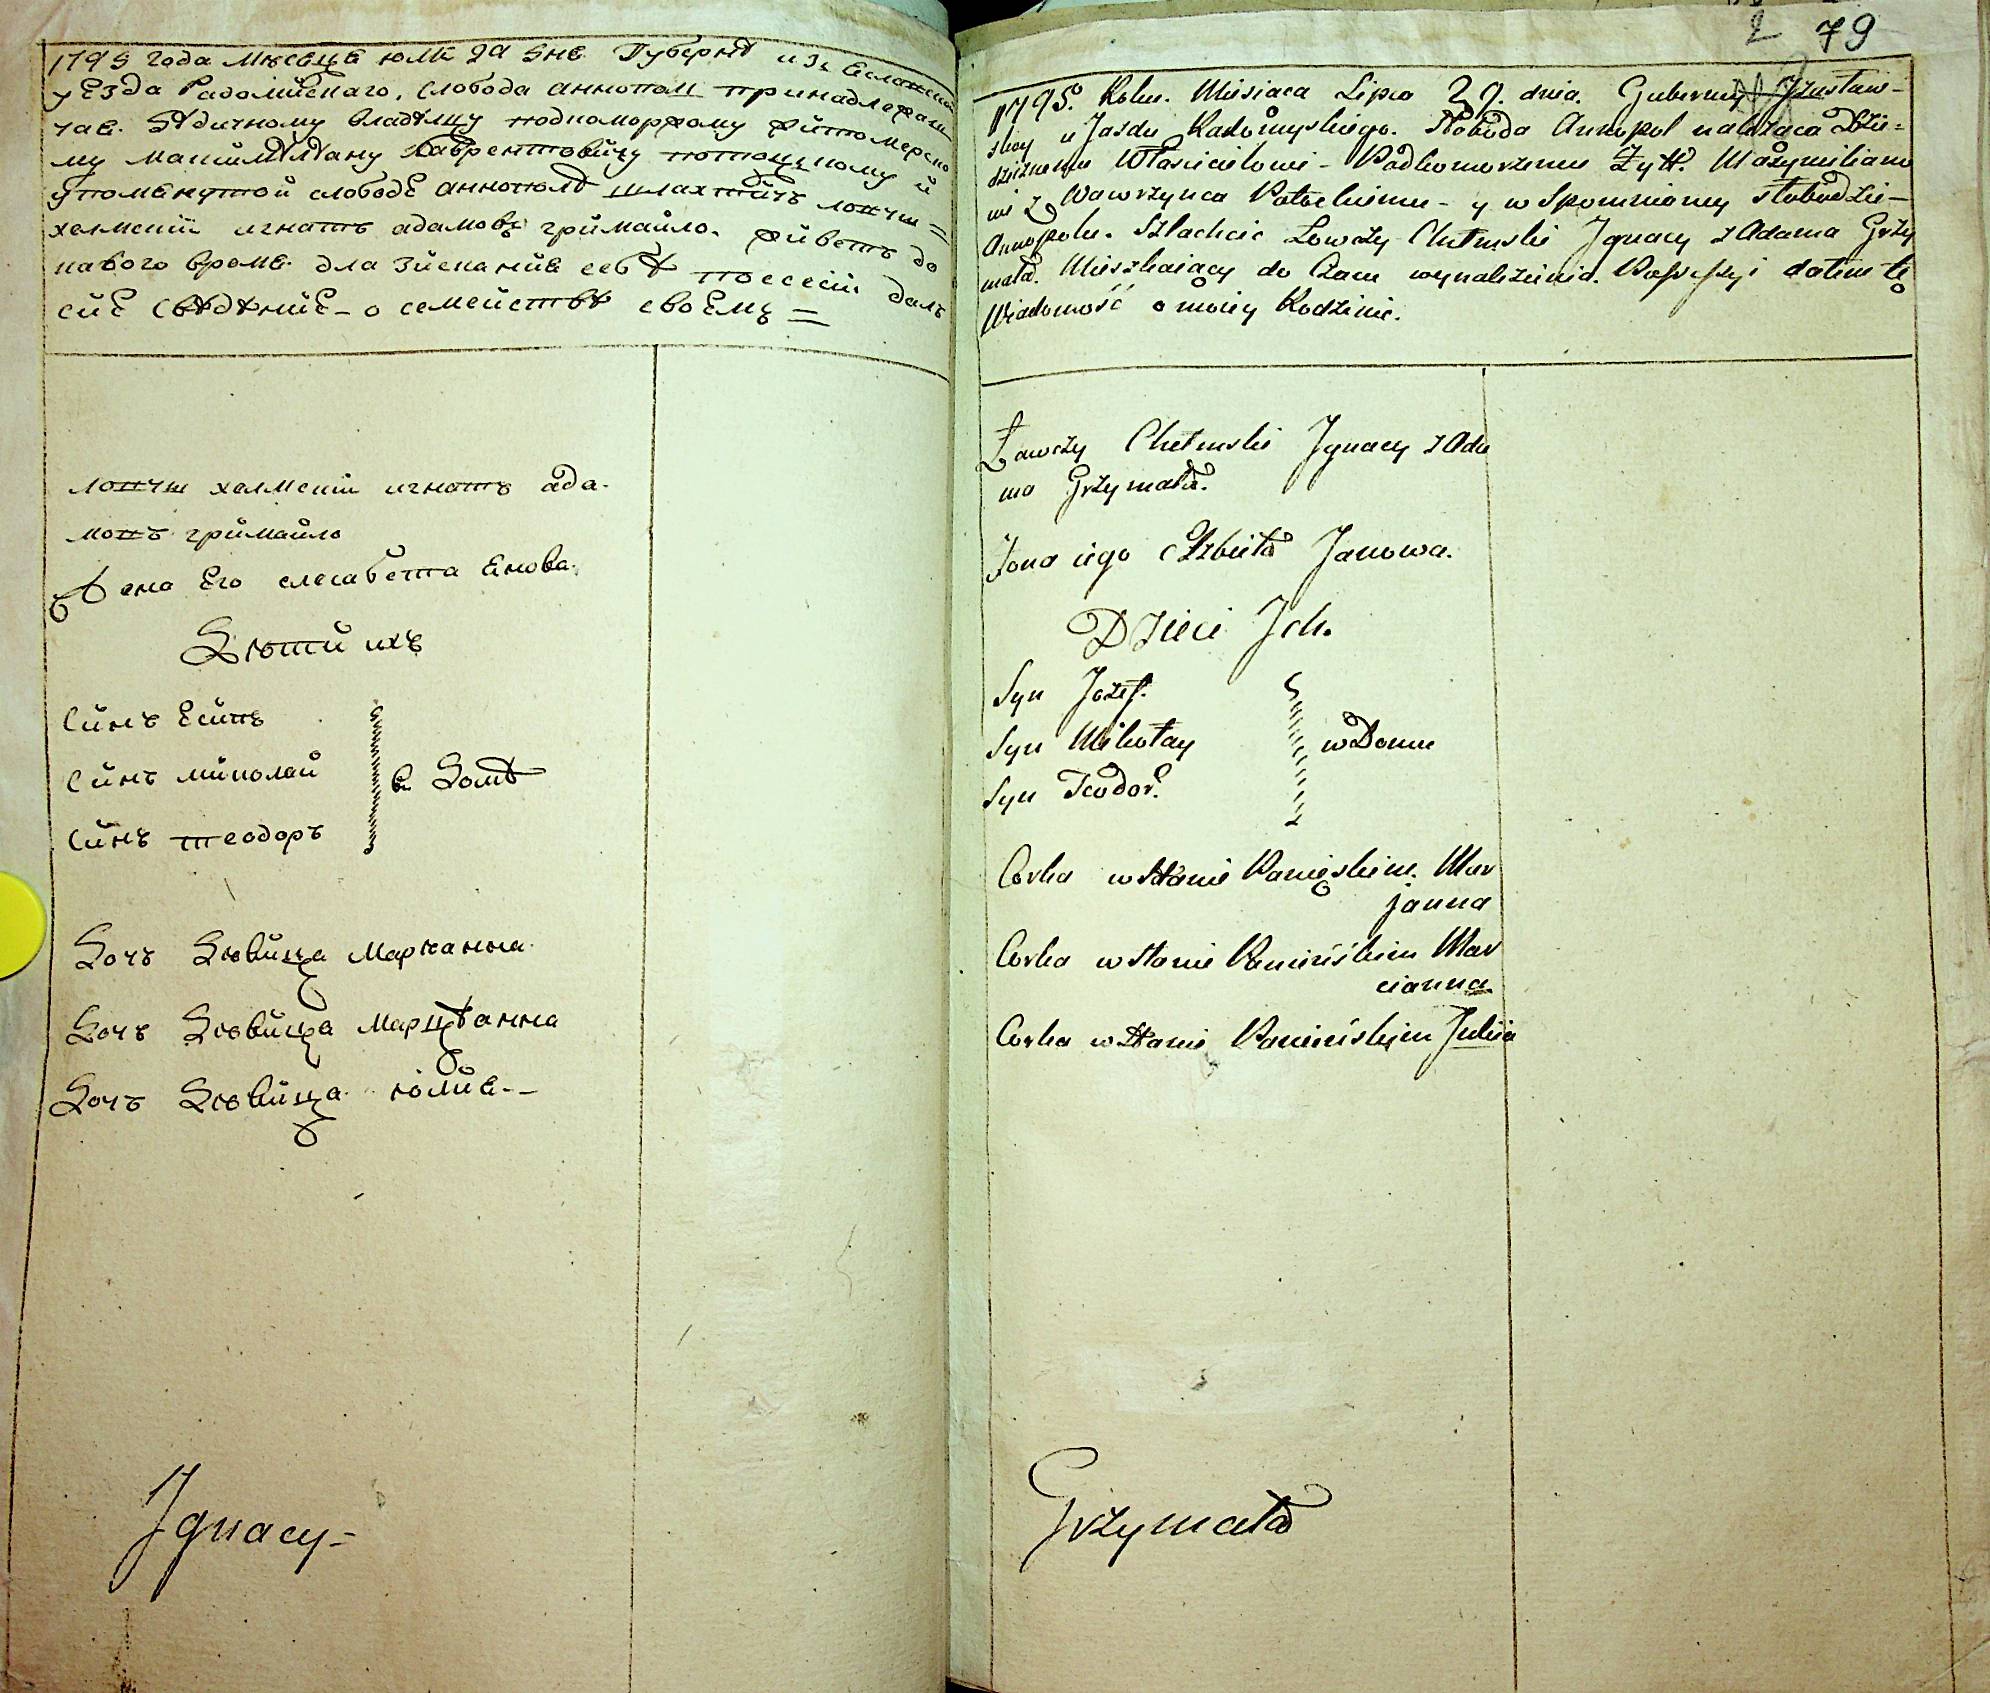 1795 года месеца июля 29 дня Губернѣ изяславской
уезда Радомйскаго, слобода аннополь принадлежащ
чая дѣдичному владѣлцу подкоморжому жйтомерско
му макимѣлѣану лаврентовйчу потоцкному й
упомянутой слободѣ аннополѣ шлахтйчъ ловчи =
хелмскій игнатъ адамовъ грймайло. жйветъ до
паквого время для зйсканйя себѣ поссесій далъ
сйе свѣдѣнйе о семействѣ своемъ =
ловчи хелмскій игнатъ ада-
мовъ грймайло
жена Его елесабета янова.
Дѣтй ихъ
Сйнъ Есйпъ
Сйнъ мйколай
в Домѣ
Сйнъ теодоръ
Дочъ Дѣвйца Марианна
Дочъ Дѣвйца Марцѣанна
Дочъ Дѣвйца юлйя --
Ignacy -
2 79
1795. Roku. Miesiaca Lipca 29. dnia. Guberniy Jzasław-
skiey u Jazdu Radomyskiego. Słoboda Annopol należąca Dzie=
dzicznemu Włascicielowi - Podkomorzemu Żytt. Maxymiliano
wi z Wawrzynca Potockiemu - y w Spomniony słobodzie -
Annopolu. Szlachcic Łowczy Chełmski Jgnacy z Adama Grzy
mała. Mieszkaiący do Czasu wynalezienia. Possessyi dałem tę
Wiadomość o moiey Rodzinie.
Łowczy Chełmski Jgnacy z Ada
ma Grzymała.
Żona iego Elzbieta Janowa.
Dzieci Jch.
Syn Jozef.
Syn Mikołay
w Domu
Syn Teodor.
Corka w Stanie Panięskim. Mar
janna
Corka w Stanie Panieńskim Mar
cianna
Corka w Stanie Panieńskim Julija
Grzymała